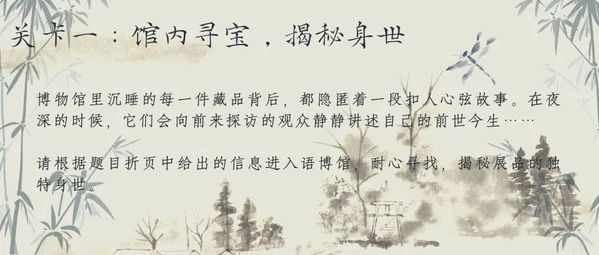 关卡一：馆内寻宝，揭秘身世
博物馆里沉睡的每一件藏品背后，都隐匿着一段扣人心弦故事。在夜
深的时候，它们会向前来探访的观众静静讲述自己的前世今生……
请根据题目折页中给出的信息进入语博馆，耐心寻找，揭秘展品的独
特身世。